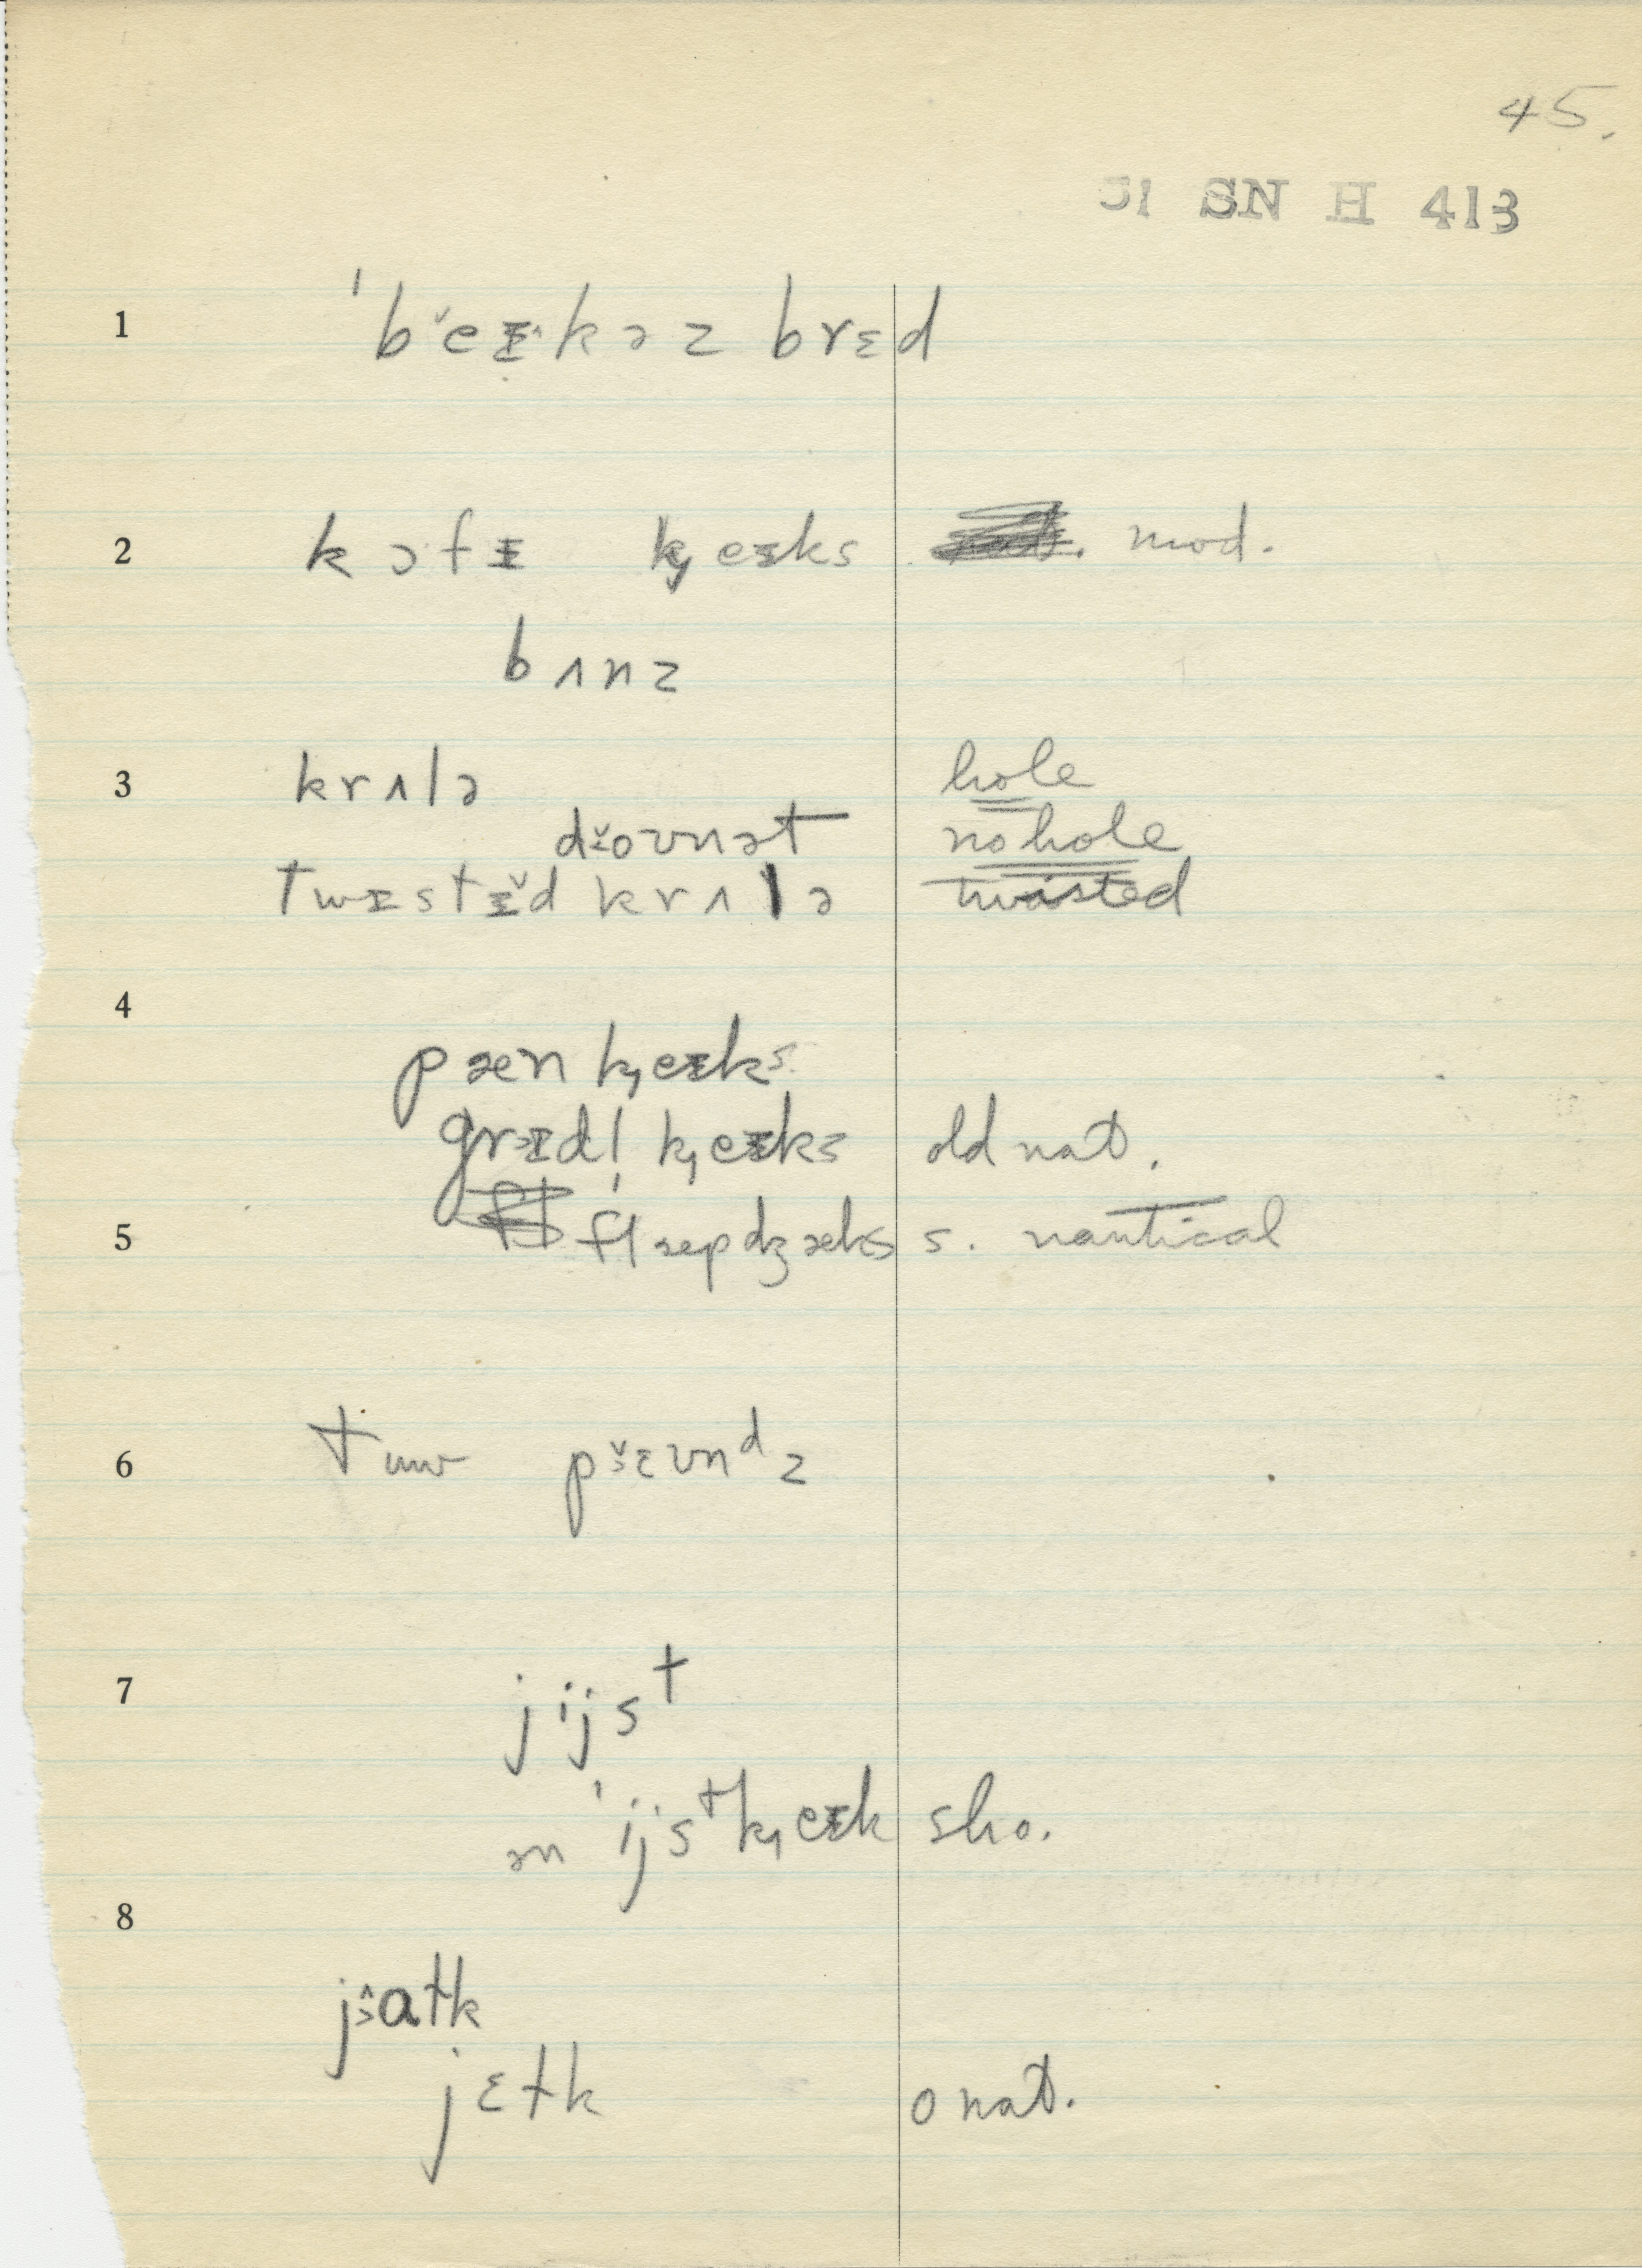 45.
SN H 413
1 ˈbˇeɪ˄kəz brɛd
2 kɔfɪ k̡eɪks mod.
bʌnz
3 krʌlə hole
džovnət no hole
twɪstɪ̌d krʌlə twisted
4
pæn k̡eɪks
grɪdl̩ k̡eɪks old nat.
5 flæpdʒæks s. nautical
6 tuw pɛʊnᵈz
7 jijsᵗ
ən ˈijsᵗk̡eɪk sho.
8
jɛtk o nat.